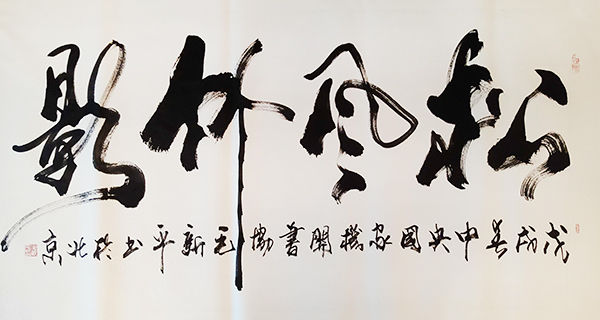 松風竹影
戊戌春中央國家機關書協毛新平书於北京